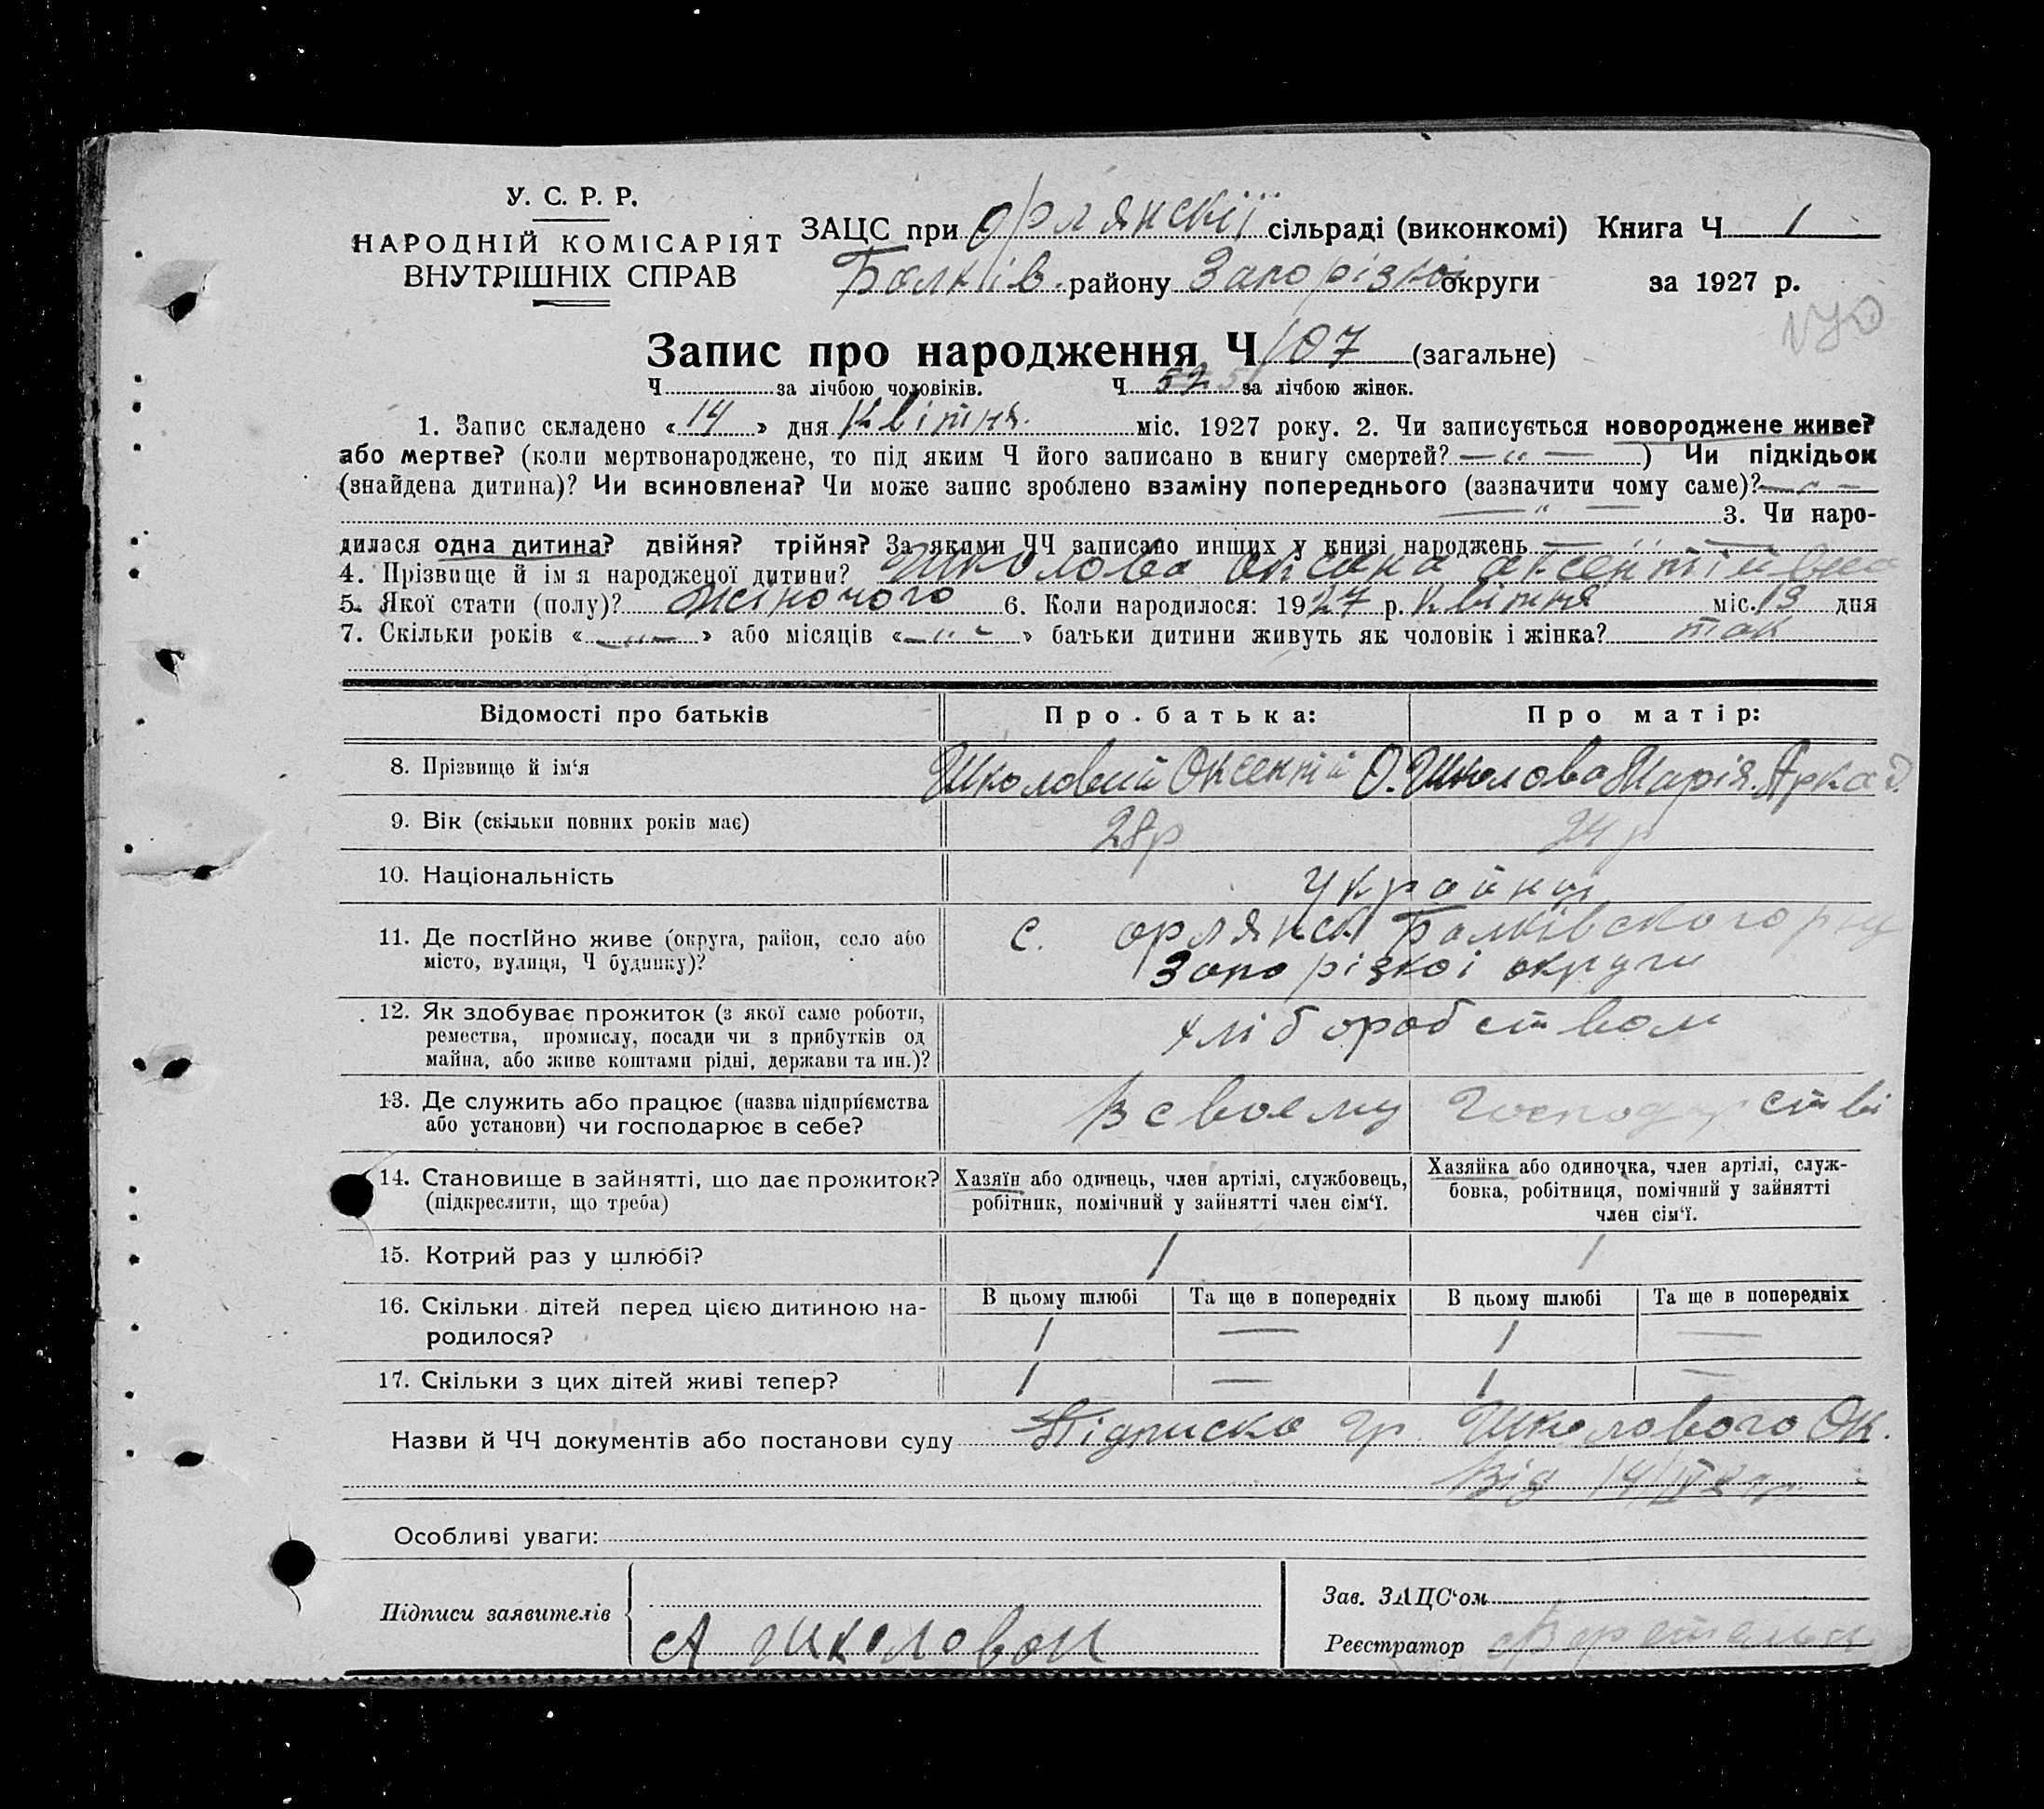 У. С. Р. Р.
НАРОДНІЙ КОМІСАРІЯТ
ВНУТРІШНІХ СПРАВ
ЗАЦС при Орлянскій сільраді (виконкомі) Книга Ч 1
Балків. району Запорізкої округи за 1927 р.
Запис про народження Ч 107 (загальне)
Ч за лічбою чоловіків. Ч 52 за лічбою жінок.
1. Запис складено «14» дня Квітня. міс. 1927 року. 2. Чи записується новороджене живе?
або мертве? (коли мертвонароджене, то під яким Ч його записано в книгу смертей? — „ —) Чи підкідьок
(знайдена дитина)? Чи всиновлена? Чи може запис зроблено взаміну попереднього (зазначити чому саме)? — „ —
— „ — 3. Чи наро-
дилася одна дитина? двійня? трійня? За якими ЧЧ записано инших у книзі народжень — „ —
4. Прізвище й ім я народженої дитини? Школова Оксана Аксентіївна
5. Якої стати (полу)? жіночого 6. Коли народилося: 1927 р. квітня міс. 13 дня
7. Скільки років « — „ — » або місяців « — „ — » батьки дитини живуть як чоловік і жінка? так
Відомості про батьків Про батька: Про матір:
8. Прізвище й ім‘я Школовий Оксентій О. Школова Марія. Аркад.
9. Вік (скільки повних років має) 28р 24р
10. Національність Українці
11. Де постійно живе (округа, район, село або с. Орлянск Балківского р-ну
місто, вулиця, Ч будинку)? Запорізкоі округи
12. Як здобуває прожиток (з якої саме роботи, хліборобством
ремества, промислу, посади чи з прибутків од
майна, або живе коштами рідні, держави та ин.)?
13. Де служить або працює (назва підприємства В своему господарстві
або установи) чи господарює в себе?
14. Становище в зайнятті, що дає прожиток? Хазяїн або одинець, член артілі, службовець, Хазяйка або одиночка, член артілі, служ-
(підкреслити, що треба) робітник, помічний у зайнятті член сім‘ї. бовка, робітниця, помічний у зайнятті
член сім‘ї.
15. Котрий раз у шлюбі? 1 1
16. Скільки дітей перед цією дитиною на- В цьому шлюбі Та ще в попередніх В цьому шлюбі Та ще в попередніх
родилося? 1 — 1 —
17. Скільки з цих дітей живі тепер? 1 — 1 —
Назви й ЧЧ документів або постанови суду Підписка гр. Школового Ок.
Від 14/IV 27р.
Особливі уваги:
Підписи заявителів А Школовой
Зав. ЗАЦС‘ом
Реєстратор